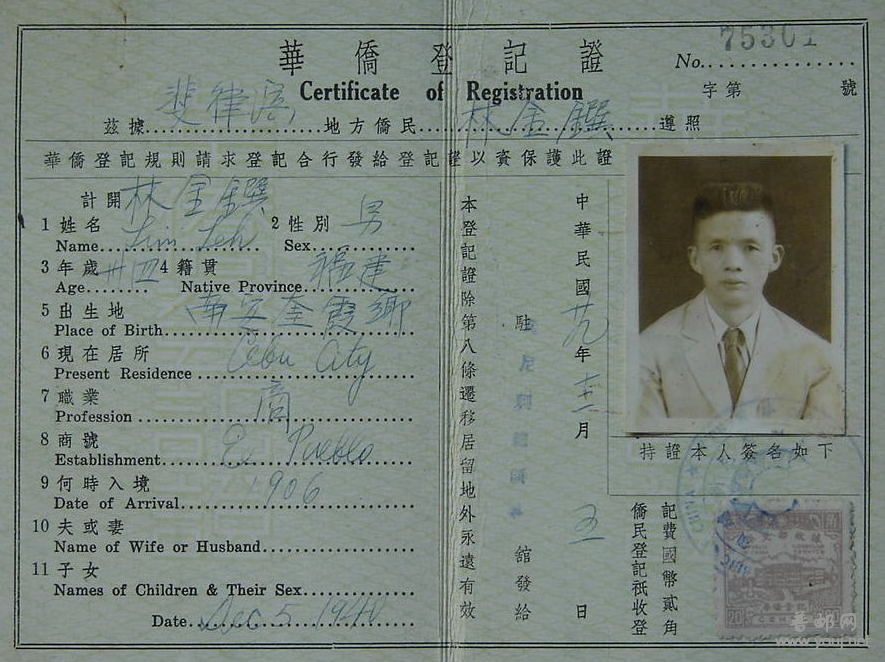 華僑登記證
No. 75301
Certificate of Registration
字第 號
茲據 斐律濱 地方僑民 林金鐉 遵照
華僑登記規則請求登記合行發給登記證以資保護此證
計開
1 姓名 林金鐉 2 性別 男
Name Lim Sex
3 年歲 卅四 4 籍貫 福建
Age Native Province
5 出生地 南安奎霞鄉
Place of Birth
6 現在居所
Present Residence Cebu City
7 職業 商
Profession
8 商號
Establishment El Pueblo
9 何時入境
Date of Arrival 1906
10 夫或妻
Name of Wife or Husband
11 子女
Names of Children & Their Sex
Date Dec 5 1940
本登記證除第八條遷移居留地外永遠有效
駐 館發給
中華民國廿九年十二月五日
持證本人簽名如下
僑民登記祇收登
記費國幣貳角